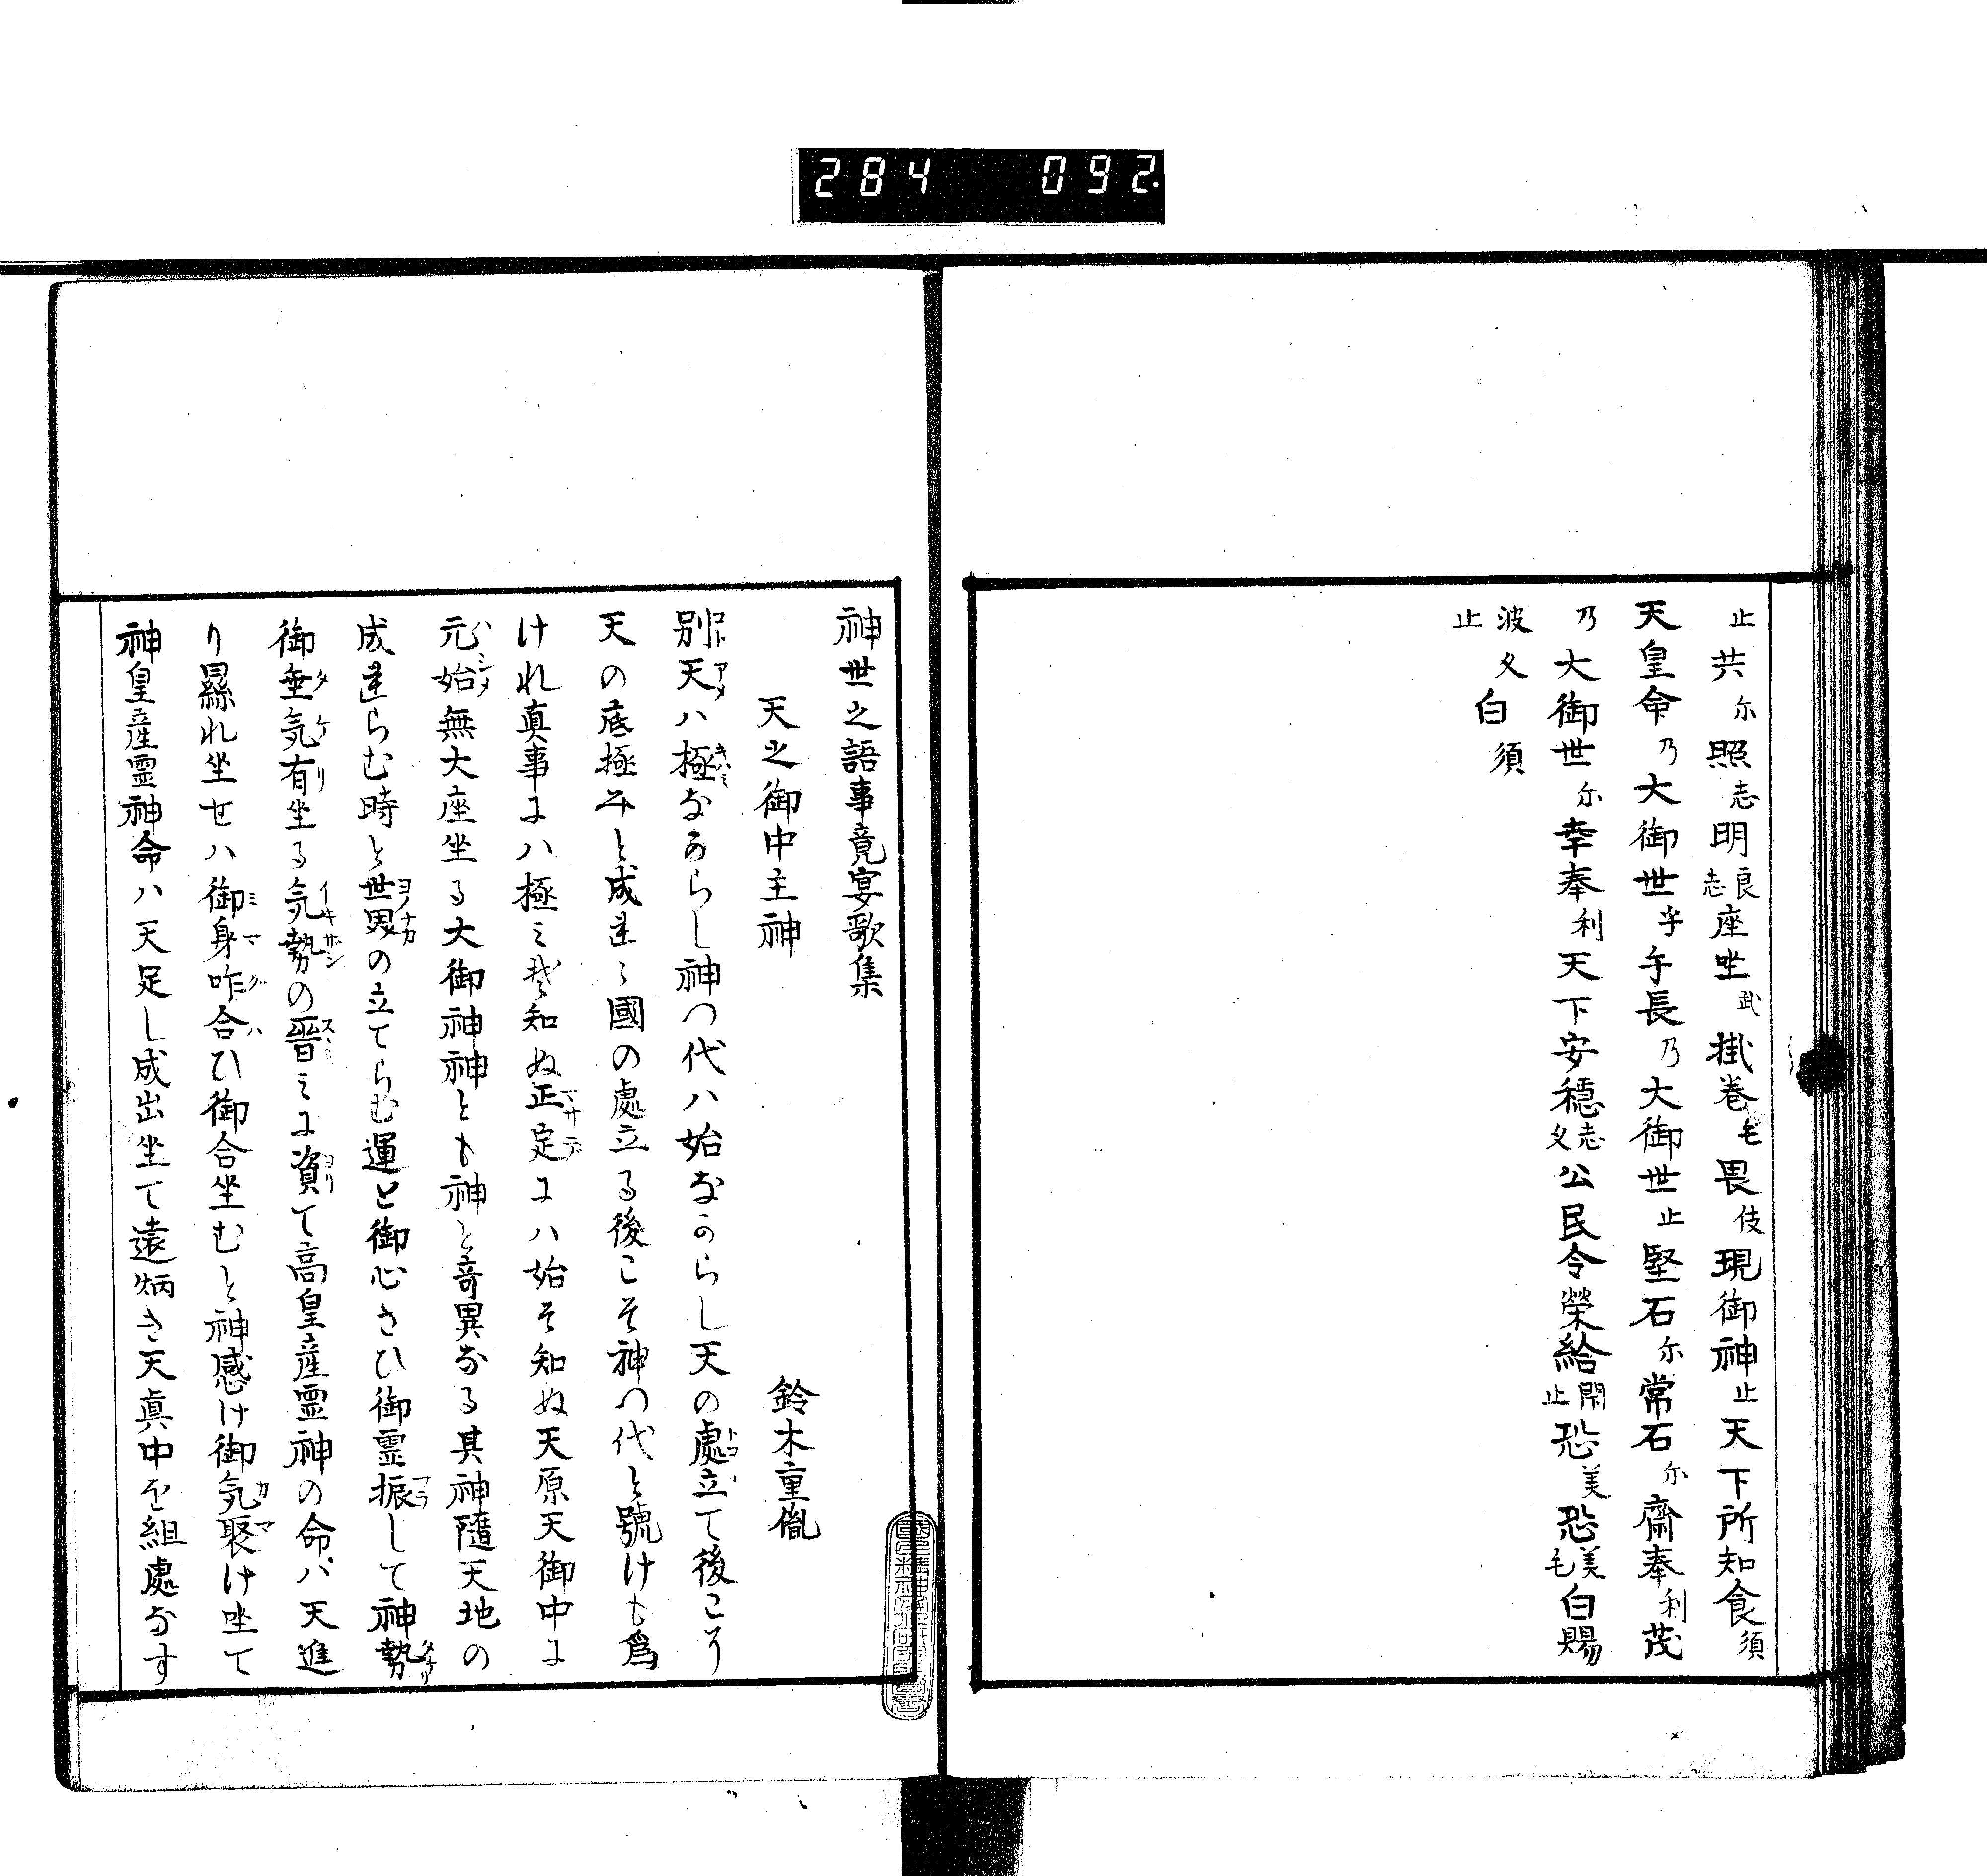 284 092.
止共尓照志明良志座坐武掛巻毛畏伎現御神止天下所知食須
天皇命乃大御世乎手長乃大御世止堅石尓常石尓齋奉利茂
乃大御世尓幸奉利天下安穏志久公民令榮給閇止恐美恐美毛白賜
波久白須
止
神世之語事竟宴歌集
天之御中主神 鈴木重胤
別天ハ極なからし神つ代ハ始なからし天の處立て後こそ
天の底極みと成里し國の處立る後こそ神つ代と號けも為
けれ真事にハ極ミそ知ぬ正定にハ始そ知ぬ天原天御中に
元始無大座坐る大御神神とも神と奇異なる其神隨天地の
成里らむ時と世界の立てらむ運と御心さひ御霊振して神勢
御垂気有坐る気勢の晋ミに資て高皇産霊神の命ハ天進
り顕れ坐せハ御身咋合ひ御合坐むと神感け御気聚け坐て
神皇産霊神命ハ天足し成出坐て遠炳き天真中を組處なす